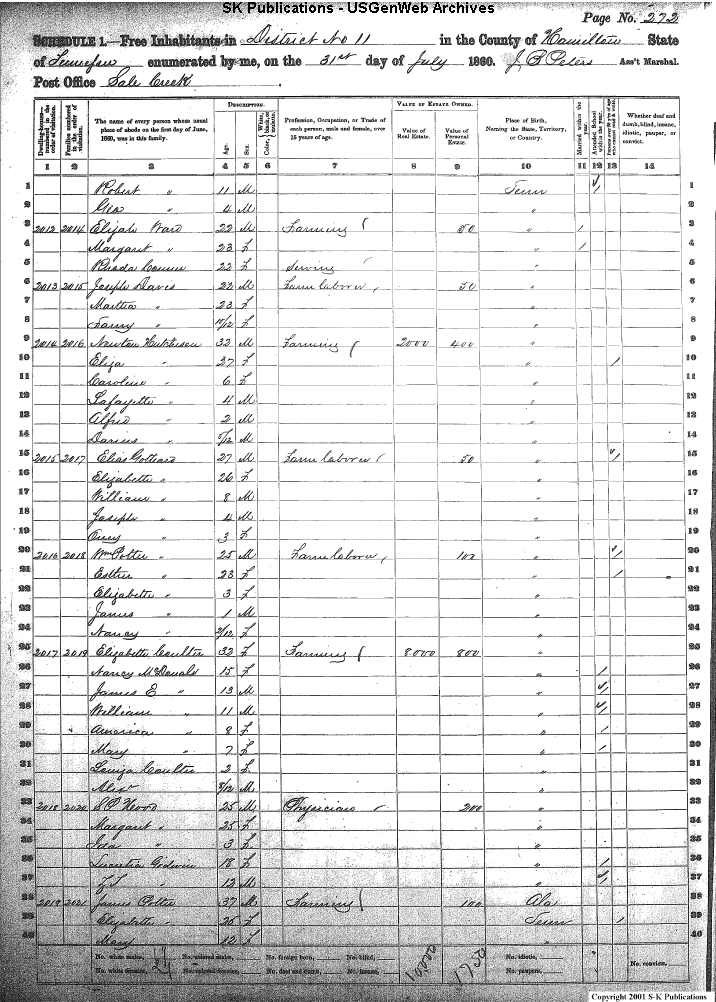 SK Publications - USGenWeb Archives
Page No. 272
SCHEDULE 1.—Free Inhabitants in District No 11 in the County of Hamilton State
of Tennessee enumerated by me, on the 31st day of July 1860. J B Peters Ass't Marshal.
Post Office Sale Creek
Dwelling-houses numbered in the order of visitation.
Families numbered in the order of visitation.
The name of every person whose usual place of abode on the first day of June, 1860, was in this family.
DESCRIPTION.
Age.
Sex.
Color, White, black, or mulatto.
Profession, Occupation, or Trade of each person, male and female, over 15 years of age.
VALUE OF ESTATE OWNED.
Value of Real Estate.
Value of Personal Estate.
Place of Birth, Naming the State, Territory, or Country.
Married within the year.
Attended School within the year.
Whether deaf and dumb, blind, insane, idiotic, pauper, or convict.
1 2 3 4 5 6 7 8 9 10 11 12 13 14
1 Robert " 11 M Tenn / 1
2 Geo " 4 M " 2
3 2012 2014 Elijah Ward 22 M Farming 50 " / 3
4 Margaret " 23 f " / 4
5 Rhoda 22 f Serving " 5
6 2013 2015 Joseph Davis 22 M Farm laborer 50 " 6
7 Martha " 23 f " 7
8 Fanny " /12 f " 8
9 2014 2016 Newton Hutcheson 32 M Farming 2000 400 " 9
10 Eliza " 27 f " / 10
11 Caroline " 6 f " 11
12 Lafayette " 4 M " 12
13 Alfred " 2 M " 13
14 Darius " /12 M " 14
15 2015 2017 Elias Gothard 27 M Farm laborer 50 " / 15
16 Elizabeth " 26 f " 16
17 William " 8 M " 17
18 Joseph " 4 M " 18
19 " 3 f " 19
20 2016 2018 Wm Potter 25 M Farm laborer 100 " / 20
21 Esther " 23 f " / 21
22 Elizabeth " 3 f " 22
23 James " 1 M " 23
24 Nancy " /12 f " 24
25 2017 2019 Elizabeth Coulter 32 f Farming 8000 800 " 25
26 Nancy McDonald 15 f " / 26
27 James E " 13 M " / 27
28 William " 11 M " / 28
29 America " 8 f " / 29
30 Mary " 7 f " / 30
31 Louiza Coulter 2 f " 31
32 Alexr /12 M " 32
33 2018 2020 S P Wood 25 M Physician 200 " 33
34 Margaret " 25 f " 34
35 Ida " 3 f " 35
36 Lucretia Godwin 18 f " / 36
37 " 12 M " / 37
38 2019 2021 James Potter 37 M Farming 100 Ala 38
39 Elizabeth " 26 f Tenn / 39
40 Mary " 12 f " 40
No. white males, No. colored males, No. foreign born, No. blind, No. idiotic, No. convicts.
No. white females, No. colored females, No. deaf and dumb, No. insane, No. paupers,
10000 1750
Copyright 2001 S-K Publications